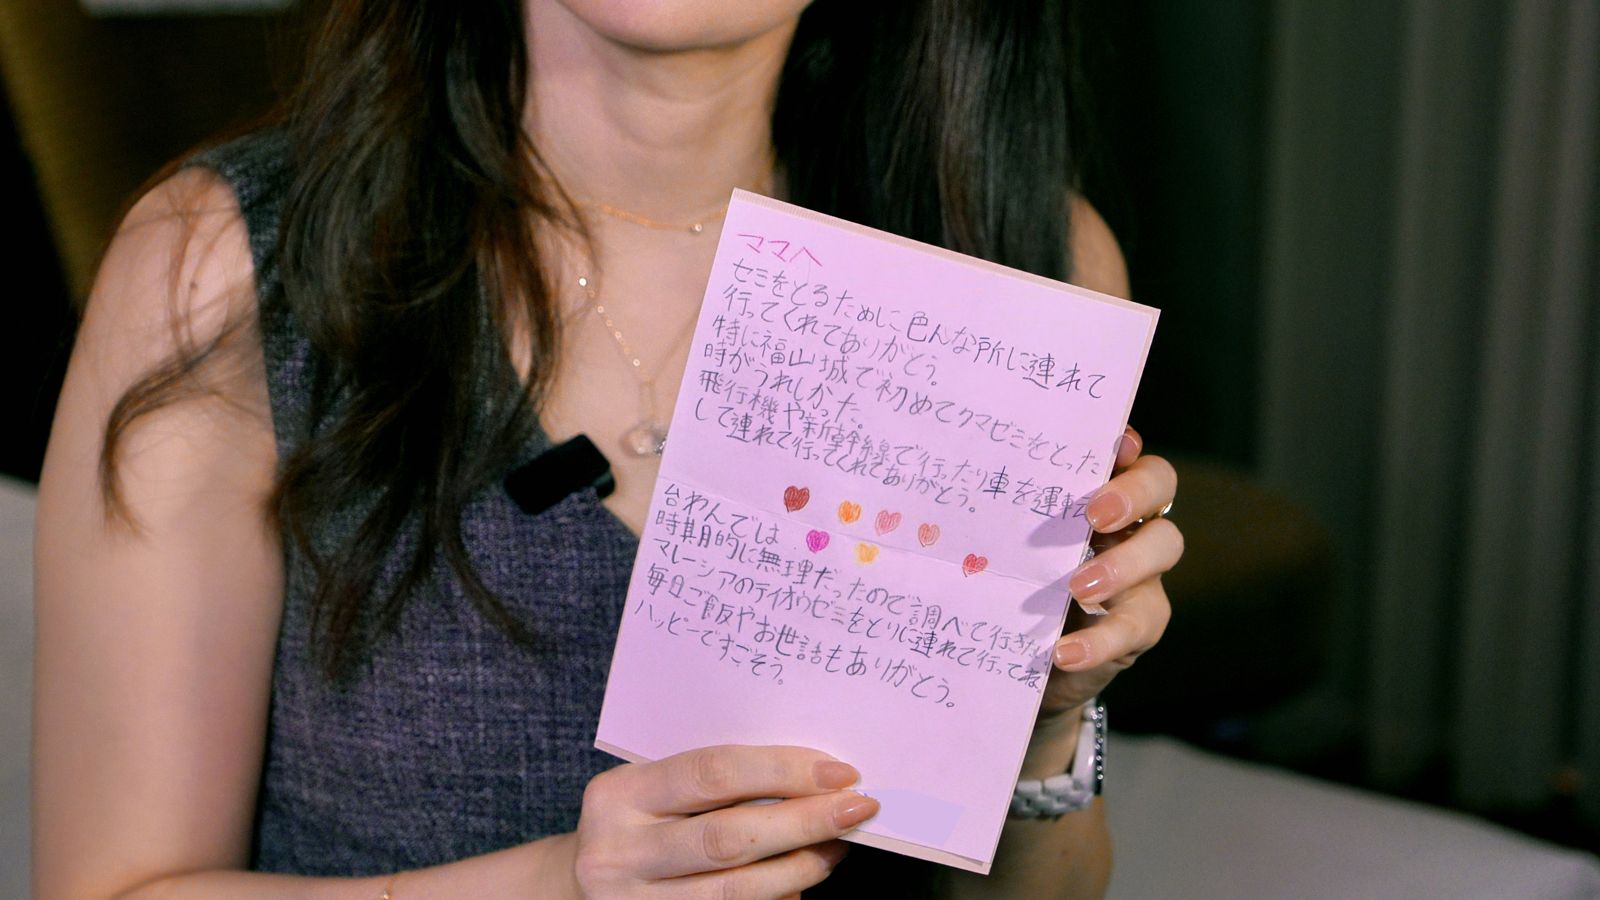 ママへ
セミをとるために色んな所に連れて
行ってくれてありがとう。
特に福山城で初めてクマゼミをとった
時がうれしかった。
飛行機や新幹線で行ったり車を運転
して連れて行ってくれてありがとう。
台わんでは
時期的に無理だったので調べて行きたい。
マレーシアのテイオウゼミをとりに連れて行ってね。
毎日ご飯やお世話もありがとう。
ハッピーですごそう。